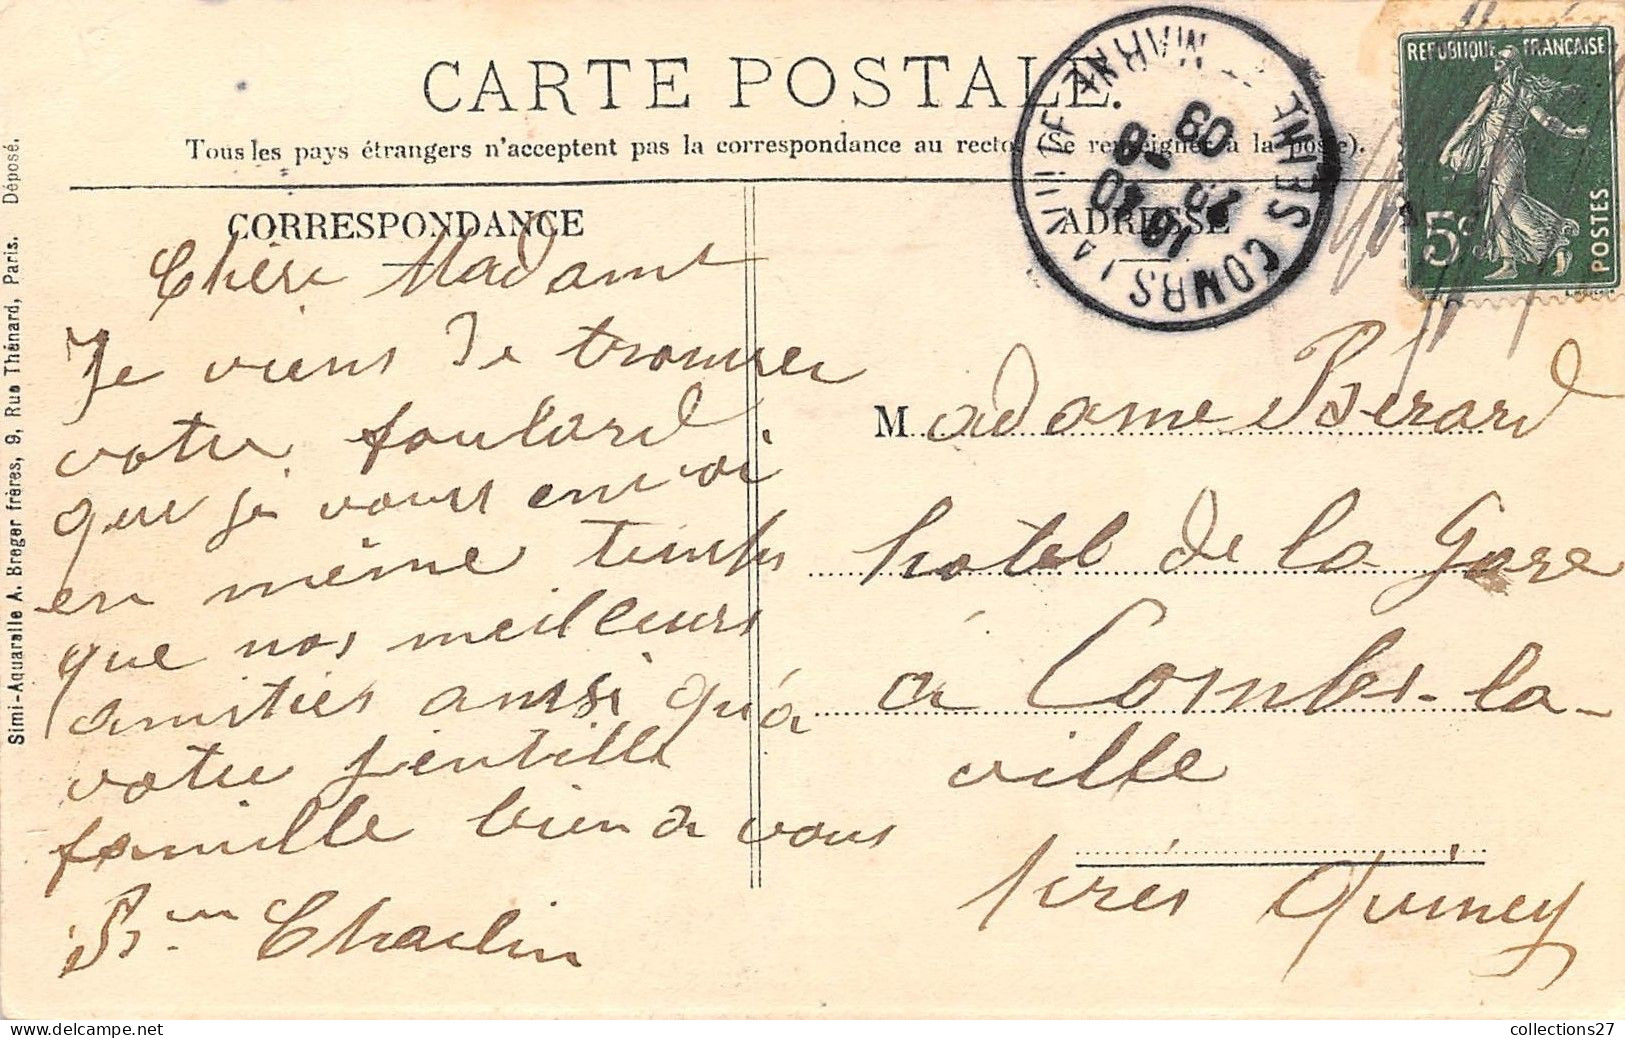 CARTE POSTALE.
Tous les pays étrangers n'acceptent pas la correspondance au recto (Se renseigner à la poste).
CORRESPONDANCE
Chère Madame
Je viens de trouver
votre foulard
que je vous envoi
en même temps
que nos meilleurs
amitiés ainsi qu'à
votre gentille
famille bien à vous
Chaelin
ADRESSE
Madame Bérard
hotel de la Gare
à Combs-la-
ville
près Quincy
COMBS LA VILLE
SEINE ET MARNE
16 40
09
REPUBLIQUE FRANÇAISE
5c
POSTES
Simi-Aquarelle A. Breger frères, 9, Rue Thénard, Paris. Déposé.
collections27